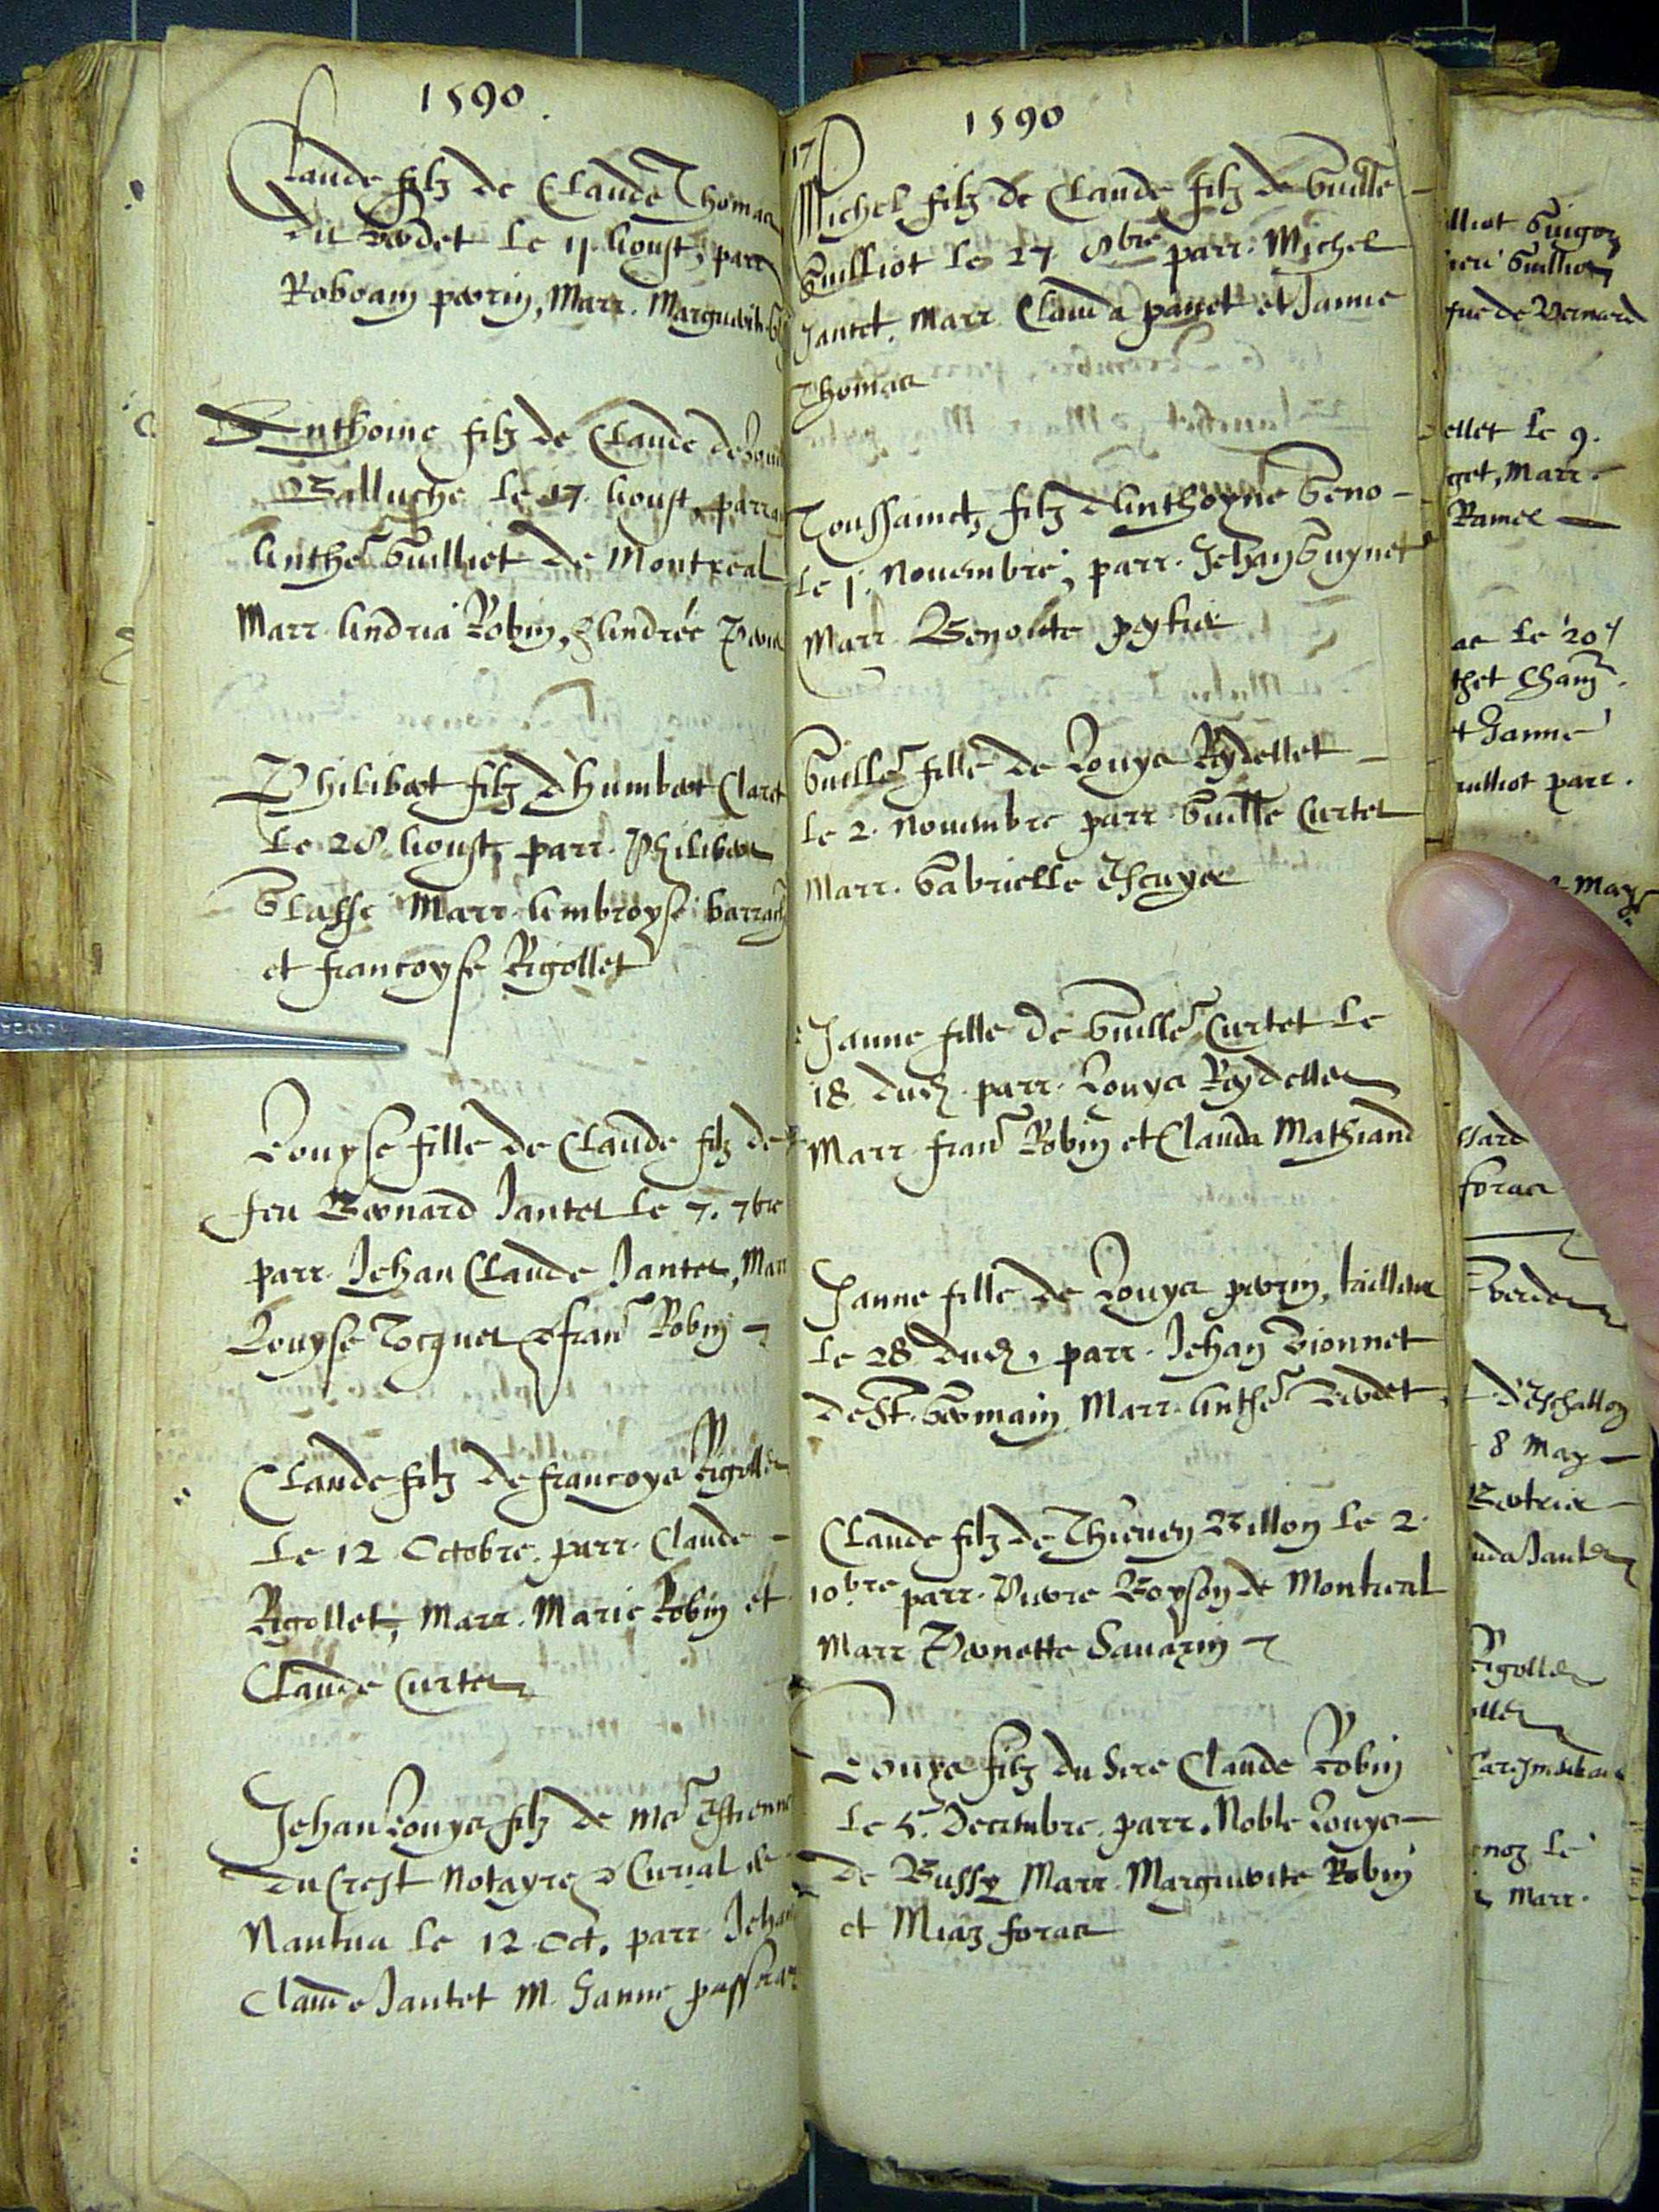 1590.
Claude filz de Claude Thomas
dit Verdet le 11. Aoust, parr
Roboam perrin, Marr. Marguerite
Anthoine filz de Claude
Balluche le 17. Aoust, parrain
Anthe Guilliet de Montreal
Marr. Andrea Robin, & Andrée
Philibert filz d'humbert Claret
Le 28 Aoust, parr. Philibert
Marr. Ambroyse
et francoyse Rigollet
Louyse fille de Claude filz de
feu Bernard Jantet le 7. 7bre
parr. Jehan Claude Jantet, Marr
Louyse Tocquet & fran Robin
Claude filz de francoys Rigollet
Le 12 Octobre. parr. Claude
Rigollet, Marr. Marie Robin et
Claude Curtet
Jehan Louys filz de me Estienne
du Crest Notayre & Curial de
Nantua le 12. Oct. parr. Jehan
Claude Jantet M. Janne
117
1590
Michel filz de Claude filz de Guille
Guilliot le 27. 8bre parr. Michel
Jantet. Marr Clauda panet et Janne
Thomas
Toussainct filz d'Anthoyne Geno
le 1. Nouembre, parr. Jehan Guynet
Marr. Benoite
Guille fille de Louys Reydellet
le 2. Nouembre parr Guille Curtet
Marr. Gabrielle Escuyer
Janne fille de Guille Curtet le
18. dud. parr. Louys Reydellet
Marr. fran Robin et Clauda Mathiand
Janne fille de Louys perrin, tailleur
le 28 dud. parr. Jehan Vionnet
de St. Germain Marr. Anthe Verdet
Claude filz de Thieuen Billon le 2.
10bre parr. Pierre Boyson de Montreal
Marr Pernette Sauarin
Louys filz du Sire Claude Robin
Le 5. Decembre. parr. Noble Louys
de Bussy Marr. Marguerite Robin
et Miaz foras
lliot Guigon
fue de Bernard
ellet le 9.
get, Marr.
Ramel
as le 20
et Janne
uilliot parr.
May
ssard
foras
d'Eschallon
8 May
Beatrix
uda Jantet
Rigollet
noz le
Marr.